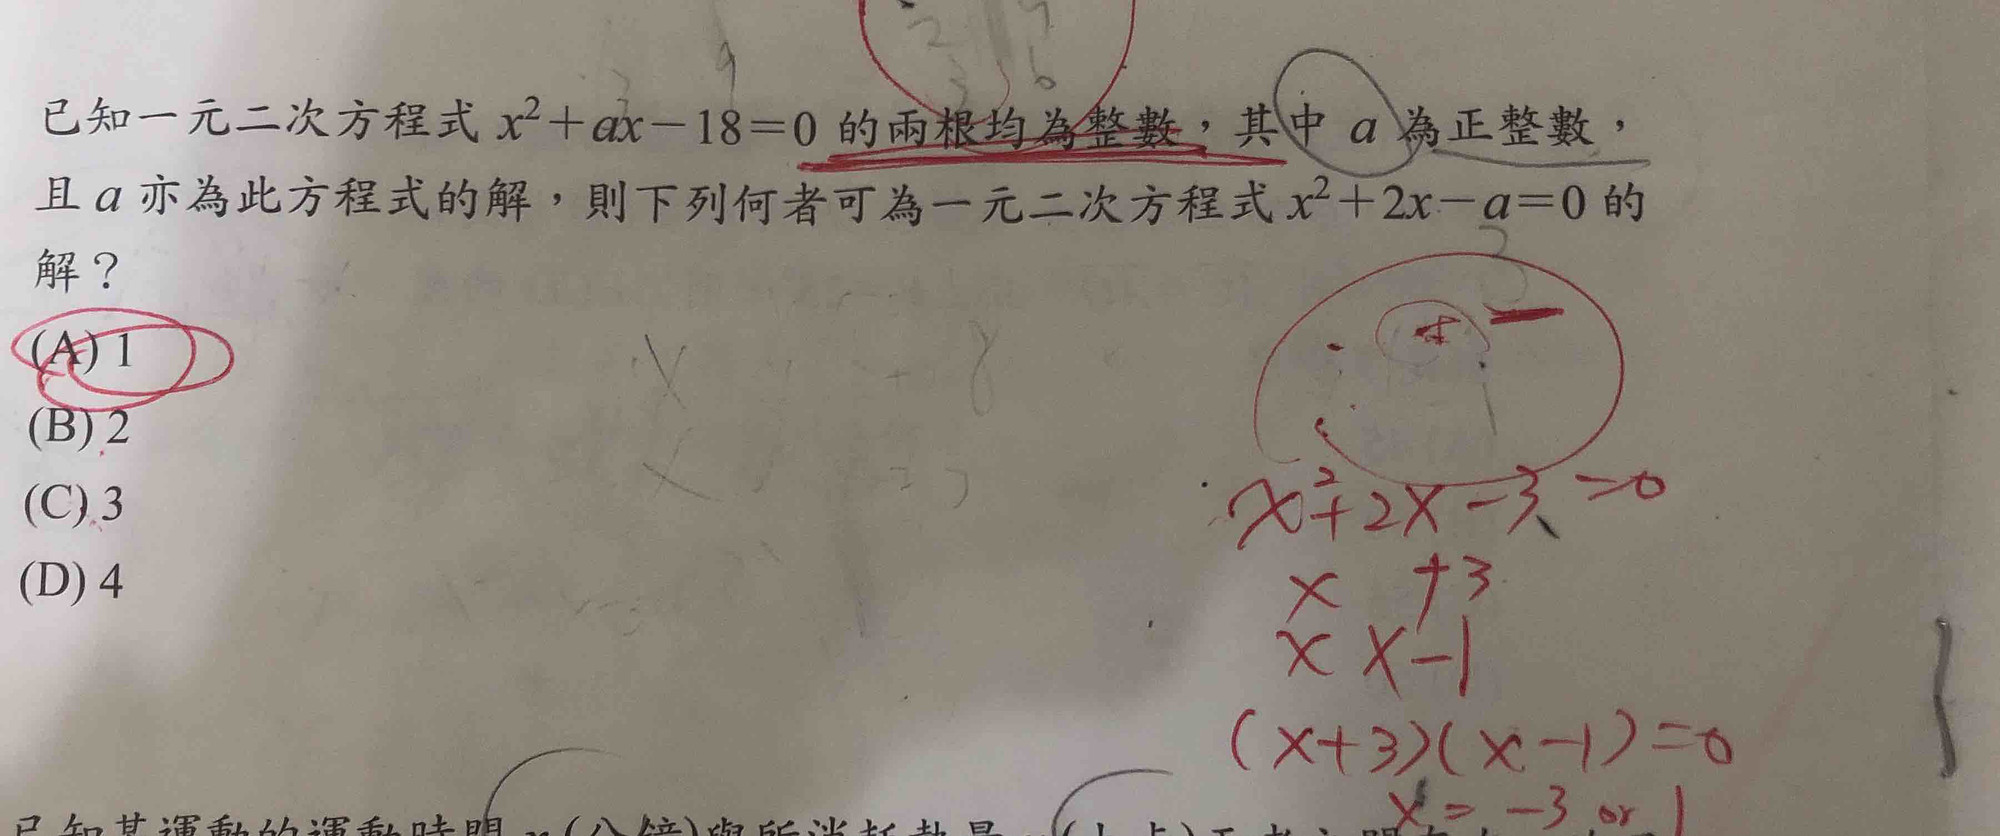 2 9
3 6
3 9
已知一元二次方程式 x²+ax−18=0 的兩根均為整數，其中 a 為正整數，
且 a 亦為此方程式的解，則下列何者可為一元二次方程式 x²+2x−a=0 的
3
解？
(A) 1
(B) 2
(C) 3
(D) 4
x²+2x−3=0
x +3
x x−1
(x+3)(x−1)=0
x=−3 or 1